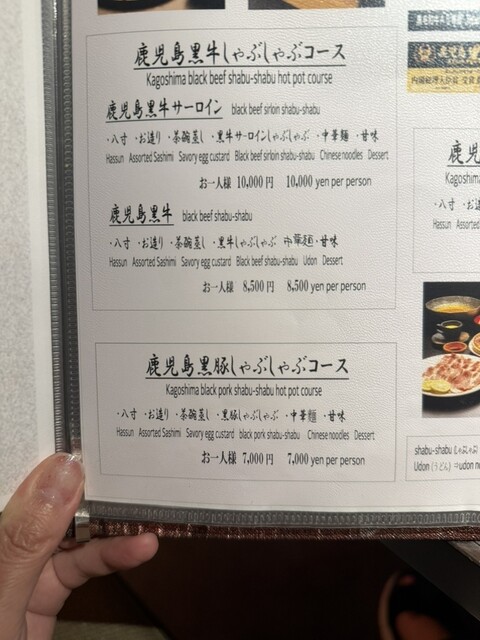 鹿児島黒牛しゃぶしゃぶコース
Kagoshima black beef shabu-shabu hot pot course
鹿児島黒牛サーロイン black beef sirloin shabu-shabu
・八寸 ・お造り ・茶碗蒸し ・黒牛サーロインしゃぶしゃぶ ・中華麺 ・甘味
Hassun Assorted Sashimi Savory egg custard Black beef sirloin shabu-shabu Chinese noodles Dessert
お一人様 10,000円 10,000 yen per person
鹿児島黒牛 black beef shabu-shabu
・八寸 ・お造り ・茶碗蒸し ・黒牛しゃぶしゃぶ 中華麺 ・甘味
Hassun Assorted Sashimi Savory egg custard Black beef shabu-shabu Udon Dessert
お一人様 8,500円 8,500 yen per person
鹿児島黒豚しゃぶしゃぶコース
Kagoshima black pork shabu-shabu hot pot course
・八寸 ・お造り ・茶碗蒸し ・黒豚しゃぶしゃぶ ・中華麺 ・甘味
Hassun Assorted Sashimi Savory egg custard black pork shabu-shabu Chinese noodles Dessert
お一人様 7,000円 7,000 yen per person
鹿児
Kagoshim
・八寸 ・お
Hassun Assorted
shabu-shabu (しゃぶしゃぶ)
Udon (うどん) ⇒udon no